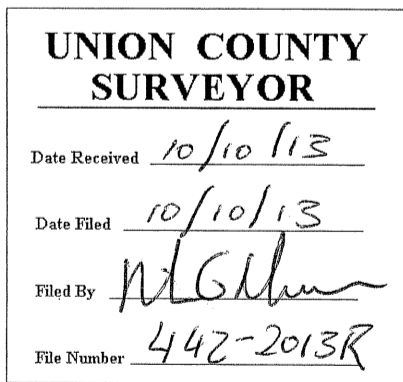 UNION COUNTY
SURVEYOR
Date Received 10/10/13
Date Filed 10/10/13
Filed By
File Number 442-2013R